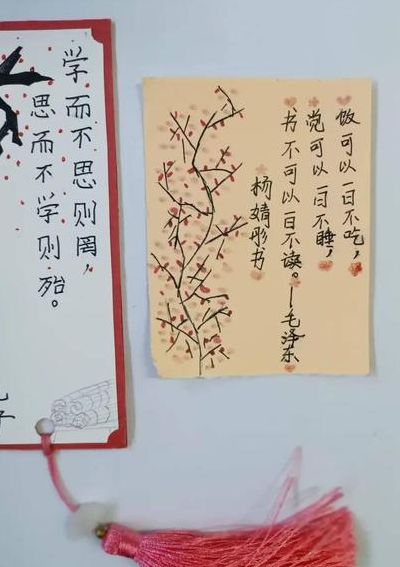 饭可以一日不吃，
觉可以一日不睡，
书不可以一日不读。——毛泽东
杨婧彤书
学而不思则罔，
思而不学则殆。
子